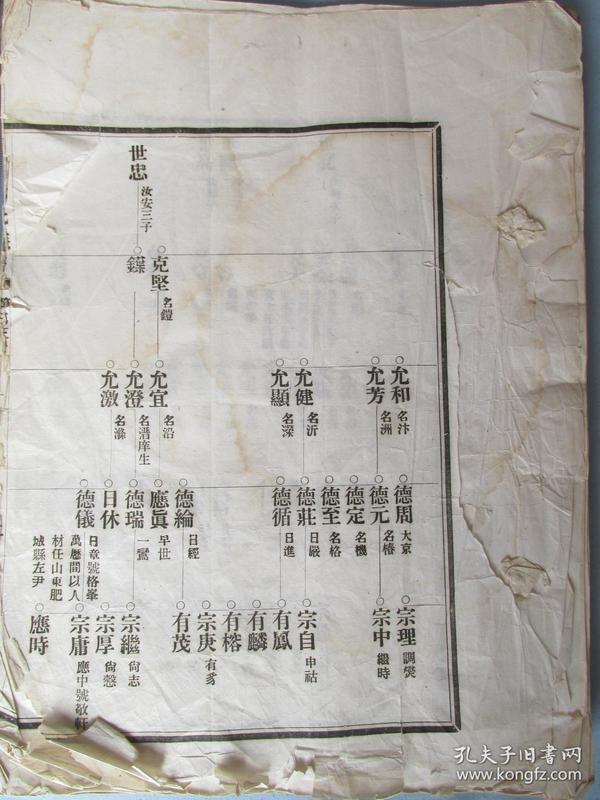 世忠 汝安三子
克堅 名鎧
鏷
允和 名汴
允芳 名洲
允健 名沂
允顯 名深
允宜 名沿
允澄 名潛庠生
允激 名滌
德周 大京
德元 名椿
德定 名機
德至 名格
德莊 日嚴
德循 日進
德綸 日經
應眞 早世
德瑞 一鸞
日休
德儀 日章號格峯
萬歷間以人
材任山東肥
城縣左尹
宗理 調爕
宗中 繼時
宗自 申祜
有鳳
有麟
有榕
宗庚 有豸
有茂
宗繼 尙志
宗厚 尙慤
宗庸 應中號敬軒
應時
孔夫子旧书网
www.kongfz.com